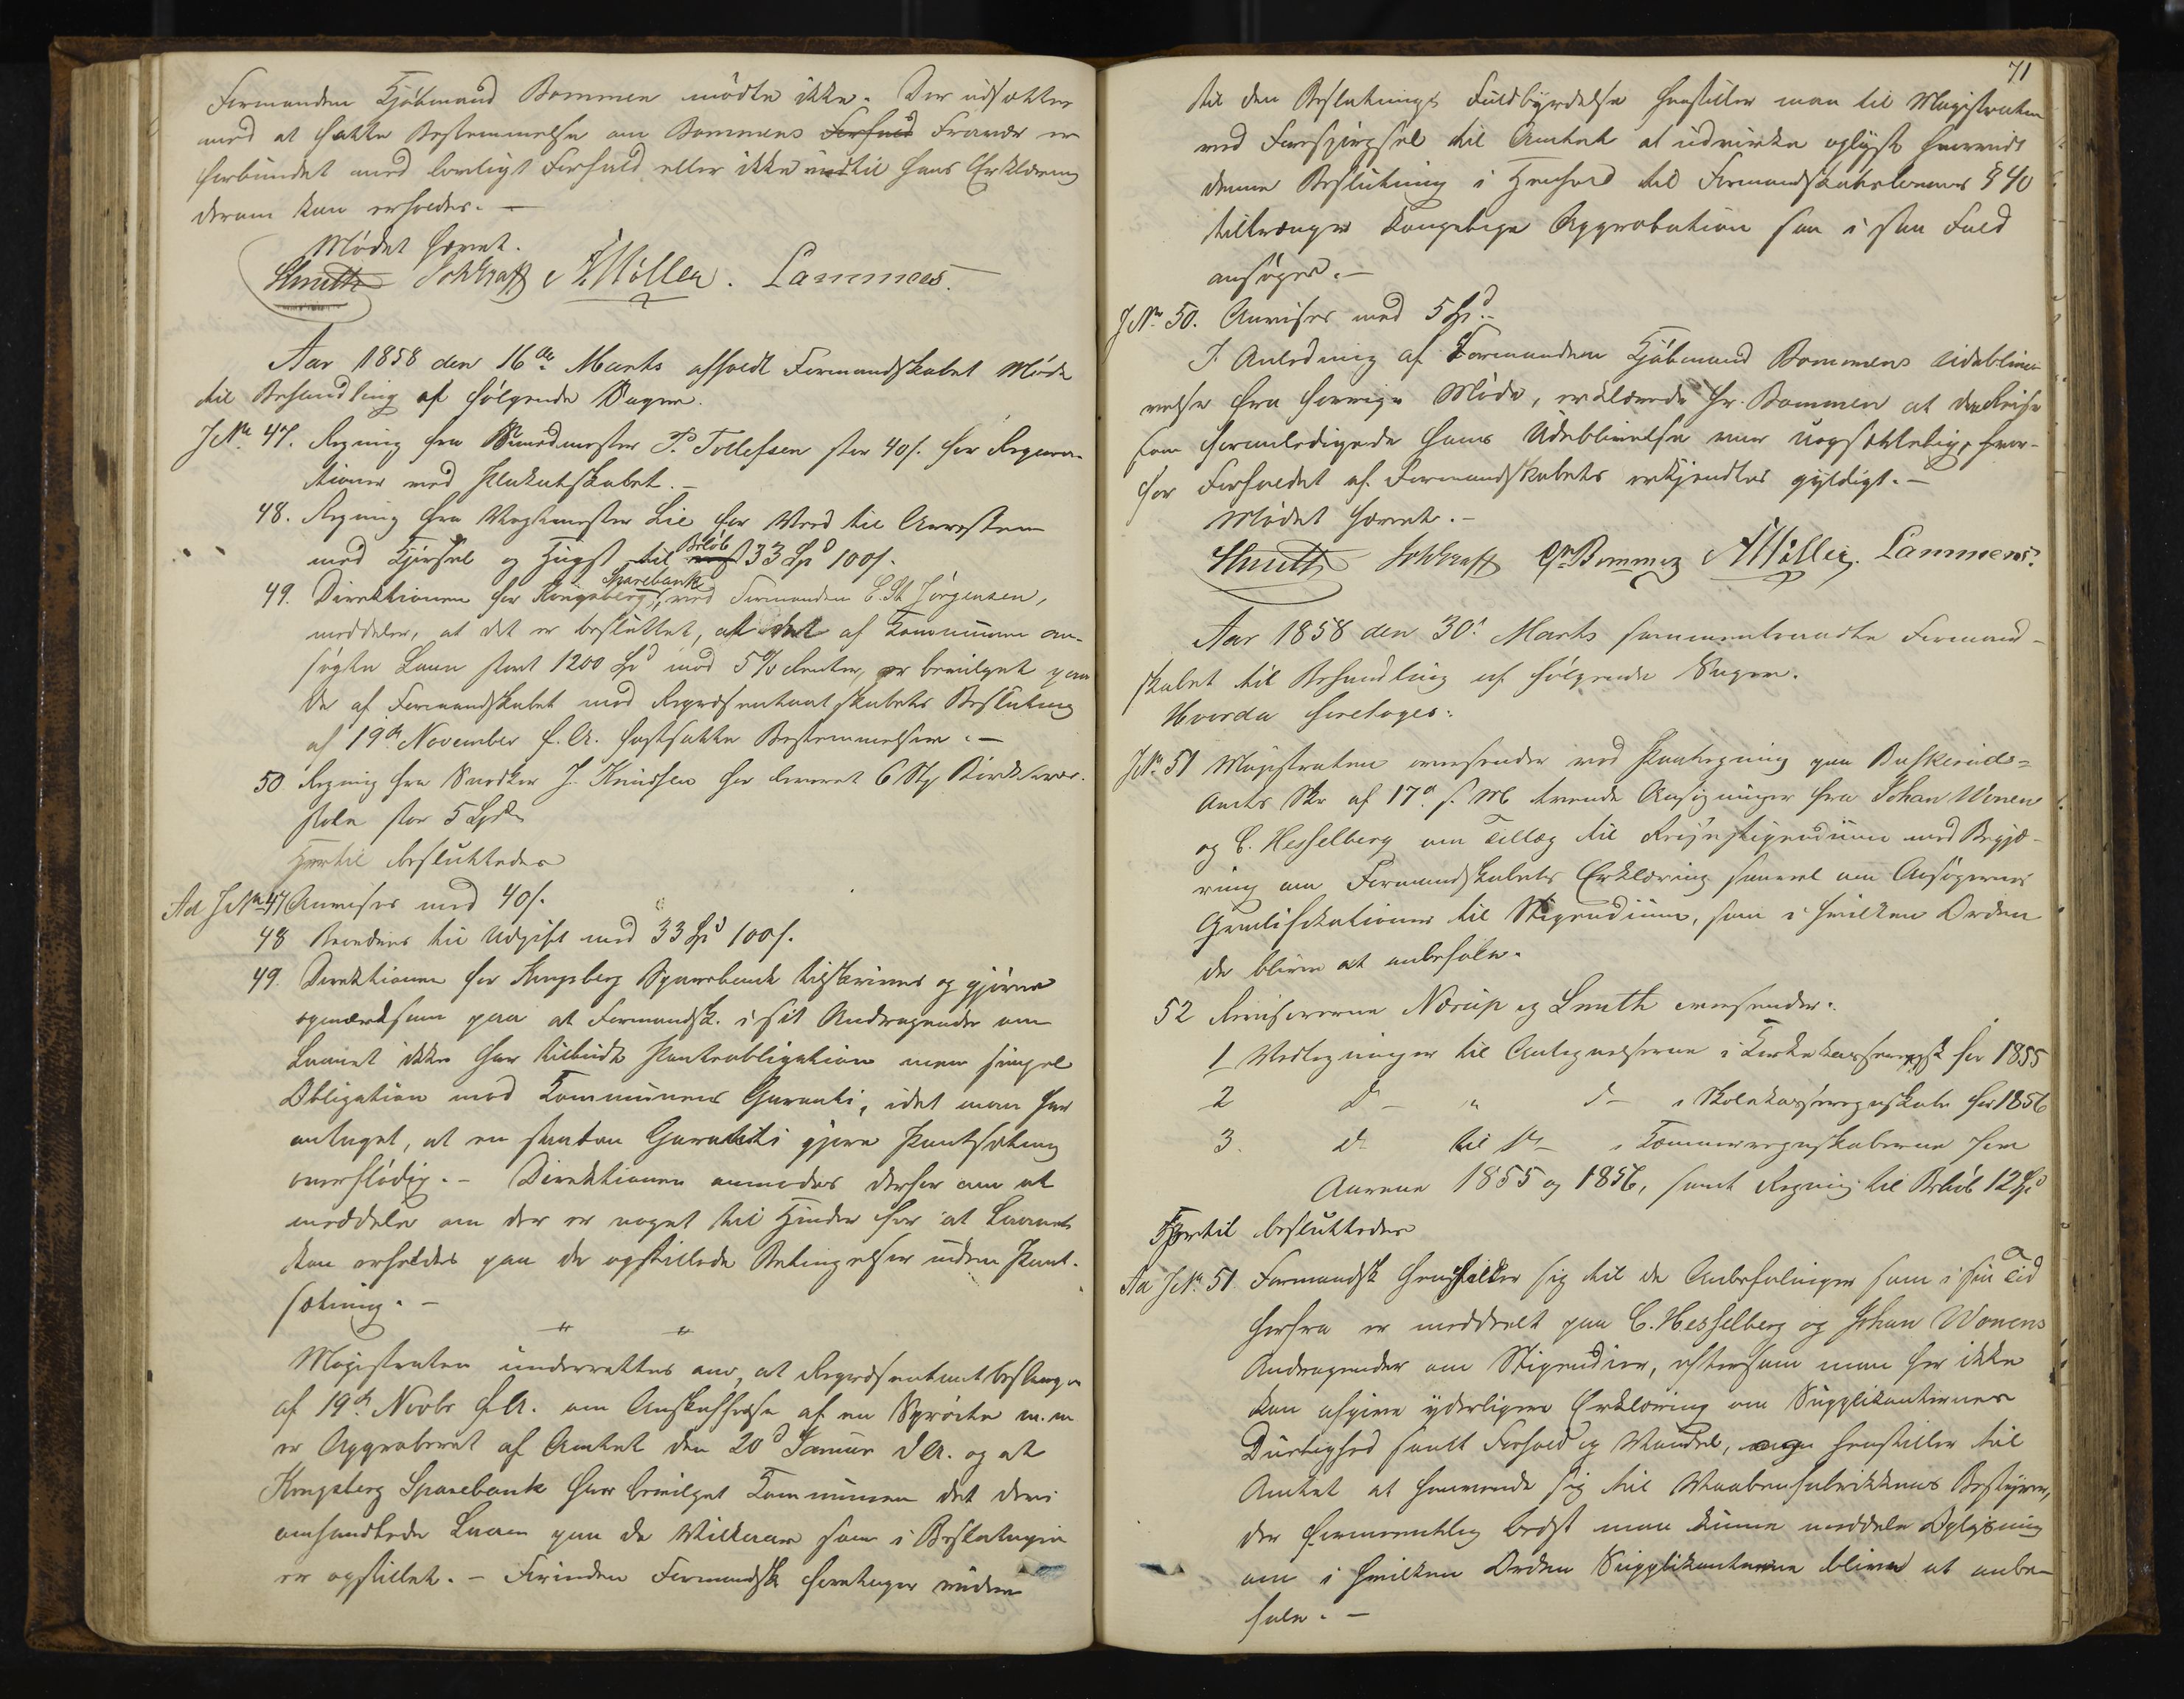 Formanden Kjøbmand Bommen mødte ikke. Der udsættes
med at fatte Bestemmelse om Bommens Forfald Fravær er
forbundet med lovligt Forfald eller ikke indtil hans Erklæring
derom kan erholdes. —
Mødet hævet.
Smith JohKraft AMöller. Lammers.
Aar 1858 den 16de Marts afholdt Formandskabet Møde
til Behandling af følgende Sager.
JNr 47. Regning fra Bundtmester P. Tollefsen stor 40 s. for Repara-
tioner ved Plakatskabet. —
48. Regning fra Vagtmester Lie for Ved til Arresten
med Kjørsel og Hugst til Beløb 33 Spd 100 s.
49. Direktionen for Kongsberg Sparebank, ved Formanden C. St Jörgensen,
meddeler, at det er besluttet, at det af Kommunen an-
søgte Laan stort 1200 Spd mod 5 % Renter, er bevilget paa
de af Formandskabet med Repræsentantskabets Beslutning
af 19de November f. A. fastsatte Bestemmelser. —
50 Regning fra Snedker J. Knudsen for leveret 6 Stp
stole stor 5 Spd
Hertil besluttedes
Ad JNr 47 Anvises med 40 s.
48 til Udgift med 33 Spd 100 s.
49. Direktionen for Kongsberg Sparebank tilskrives og gjøres
opmærksom paa at Formandsk. i sit Andragende om
Laanet ikke har tilbudt Panteobligation men simpel
Obligation med Kommunens Garanti, idet man har
antaget, at en saadan Garanti gjøre Pantsætning
overflødig. — Direktionen anmodes derfor om at
meddele om der er noget til Hinder for at Laanet
kan erholdes paa de opstillede Betingelser uden Pant-
sætning. —
Magistraten underrettes om, at Repræsentantbeslutningen
af 19de Novbr f. A. om Anskaffelse af en Sprøite m. m
er Approberet af Amtet den 20d Januar d A. og at
Kongsberg Sparebank har bevilget Kommunen det deri
omhandlede Laan paa de Vilkaar som i Beslutningen
er opstillet. — Forinden Formandsk foretager videre
71
til den Beslutnings Fuldbyrdelse henstiller man til Magistraten
ved Forespørgsel til Amtet at udvirke oplyst hvorvidt
denne Beslutning i Henhold til Formandskabslovens § 40
tiltrænges Kongelige Approbation som i saa Fald
ansøges. —
JNr 50. Anvises med 5 Spd. —
I Anledning af Formanden Kjøbmand Bommens Udebli-
velse fra forrige Møde, erklærede Hr. Bommen at den Reise
som foranledigede hans Udeblivelse var uopsættelig, hvor-
for Forfaldet af Formandskabets erkjendtes gyldigt. —
Mødet hævet. —
Smith JohKraft Bommen AMöller. Lammers.
Aar 1858 den 30te Marts sammentraadte Formand-
skabet til Behandling af følgende Sager.
Hvorda foretoges:
JNr 51 Magistraten oversender med Paategning paa Buskeruds-
Amts Skr af 17d. s. M. tvende Ansøgninger fra Johan Wonen
og C. Hesselberg om Tillæg til Reisestipendium med Begjæ-
ring om Formandskabets Erklæring saavel om Ansøgernes
Qualifikationer til Stipendium, som i hvilken Orden
de bliver at anbefale.
52 Revisorerne Nørup og Smith oversender:
1 Vedtegninger til Antegnelserne i Kirkekasseregnsk for 1855
2 do — " do — i Skolekasseregnskabe for 1856
3. do til do — i Kæmnerregnskaberne for
Aarene 1855 og 1856, samt Regning til Beløb 12 Spd
Hertil besluttedes
Ad JNr. 51. Formandsk henholder sig til de Anbefalinger som i sin Tid
herfra er meddeelt paa C. Hesselberg og Johan Wonens
Andragender om Stipendier, eftersom man her ikke
kan afgive yderligere Erklæring om Supplikanternes
Duelighed samt Forhold og Vandel, men henstiller til
Amtet at henvende sig til Vaabenfabrikkens Bestyrer,
der formentlig bedst maa kunne meddele Oplysning
om i hvilken Orden Supplikanterne bliver at anbe-
fale. —